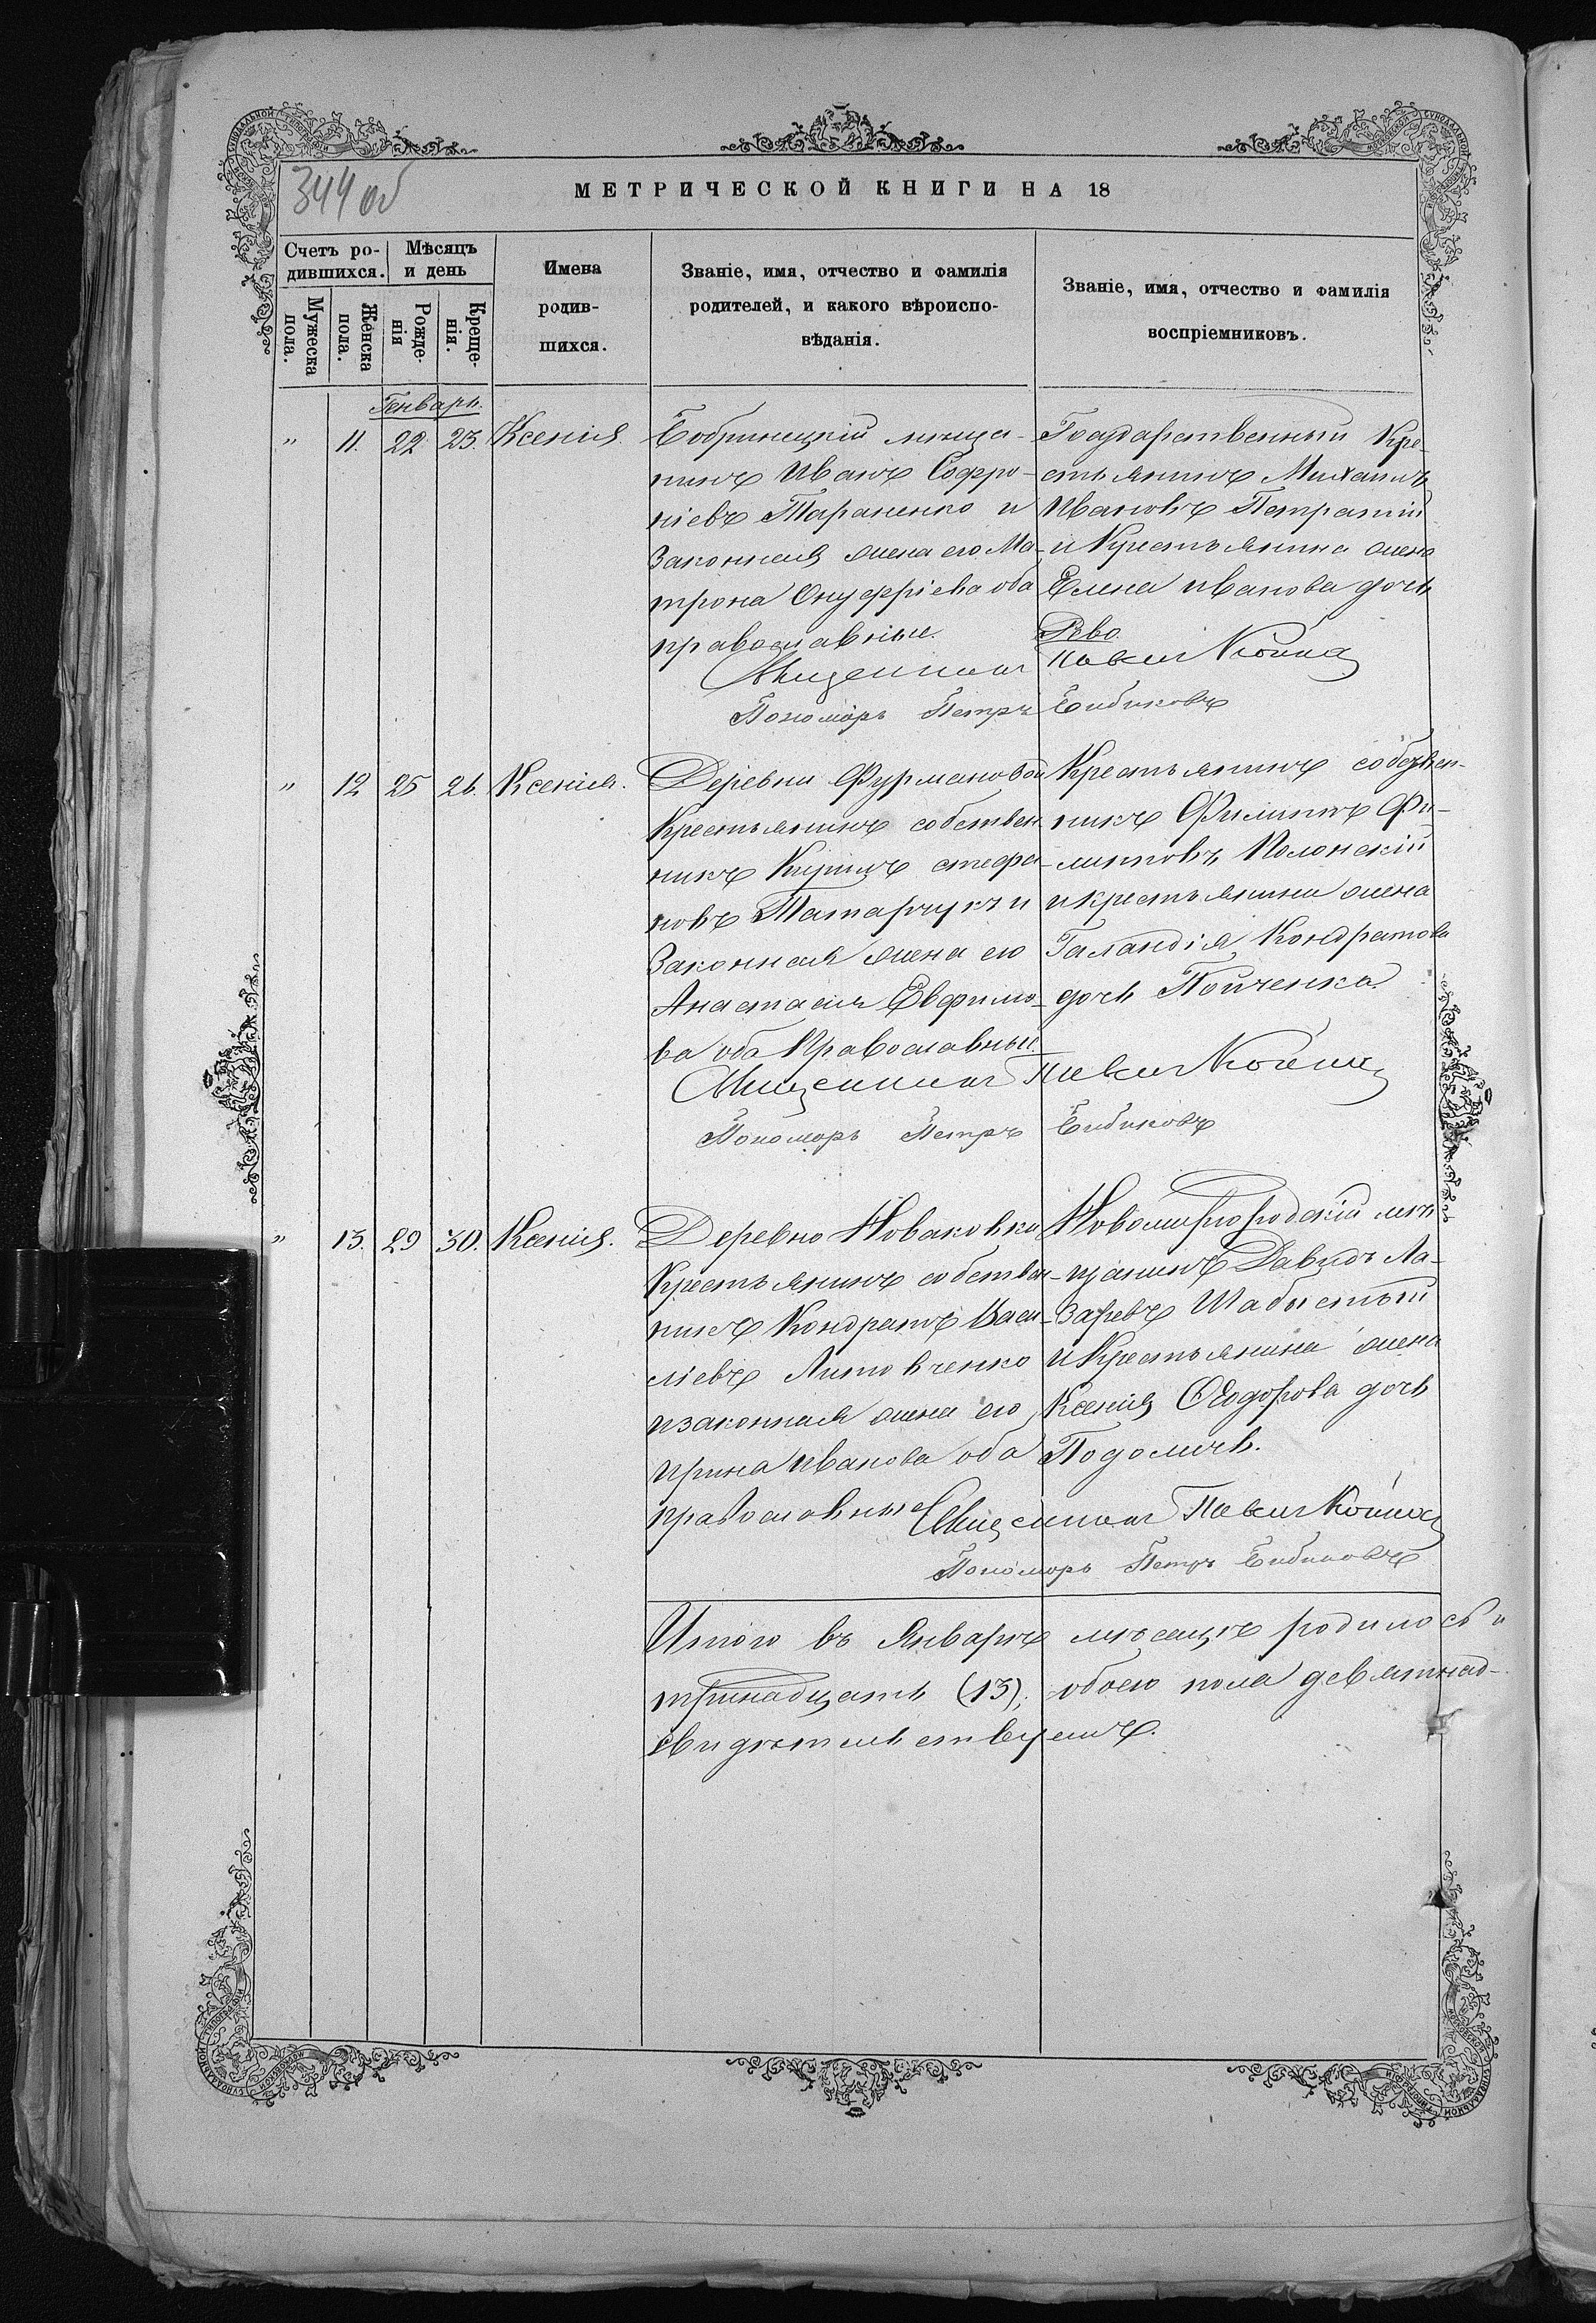 344 об
МЕТРИЧЕСКОЙ КНИГИ НА 18
Счетъ ро-
дившихся.
Мѣсяцъ
и день
Мужеска
пола.
Женска
пола.
Рожде-
нія
Креще-
нія.
Имена
родив-
шихся.
Званіе, имя, отчество и фамилія
родителей, и какого вѣроиспо-
вѣданія.
Званіе, имя, отчество и фамилія
воспріемниковъ.
Генварь.
" 11. 22. 23. Ксенія.
Бобринецкій мѣща-
нинъ Иванъ Софро-
ніевъ Тараненко и
Законная жена его Ма-
трона Онуфріева оба
православные.
Государственный Кре-
стьянинъ Михаилъ
Ивановъ
и Крестьянина жена
Елена иванова дочь
Священникъ Павелъ
Пономарь Петръ Бибиковъ
" 12 25 26. Ксенія.
Деревни Фурмановой
Крестьянинъ собствен-
никъ Кирилъ стефа-
новъ Татарчукъ и
Законная жена его
Анастасія Евфимо-
ва оба Православные.
Крестьянинъ собствен-
никъ Филиппъ Фи-
липповъ Полонскій
и крестьянина жена
Кондратова
дочь
Священникъ Павелъ
Пономарь Петръ Бибиковъ
" 13. 29 30. Ксенія.
Деревно Новаковки
Крестьянинъ собствен-
никъ Кондратъ Васи-
ліевъ Литовченко
и законная жена его
Ирина Иванова оба
православные
Новомиргородскій мѣ-
щанинъ Давидъ Ла-
заревъ
и Крестьянина жена
Ксенія Ѳеодорова дочь
Священникъ Павелъ
Пономарь Петръ Бибиковъ
Итого въ Январѣ мѣсяцѣ родилось "
тринадцать (13); обоего пола девятнад-
свидѣтельствуемъ.